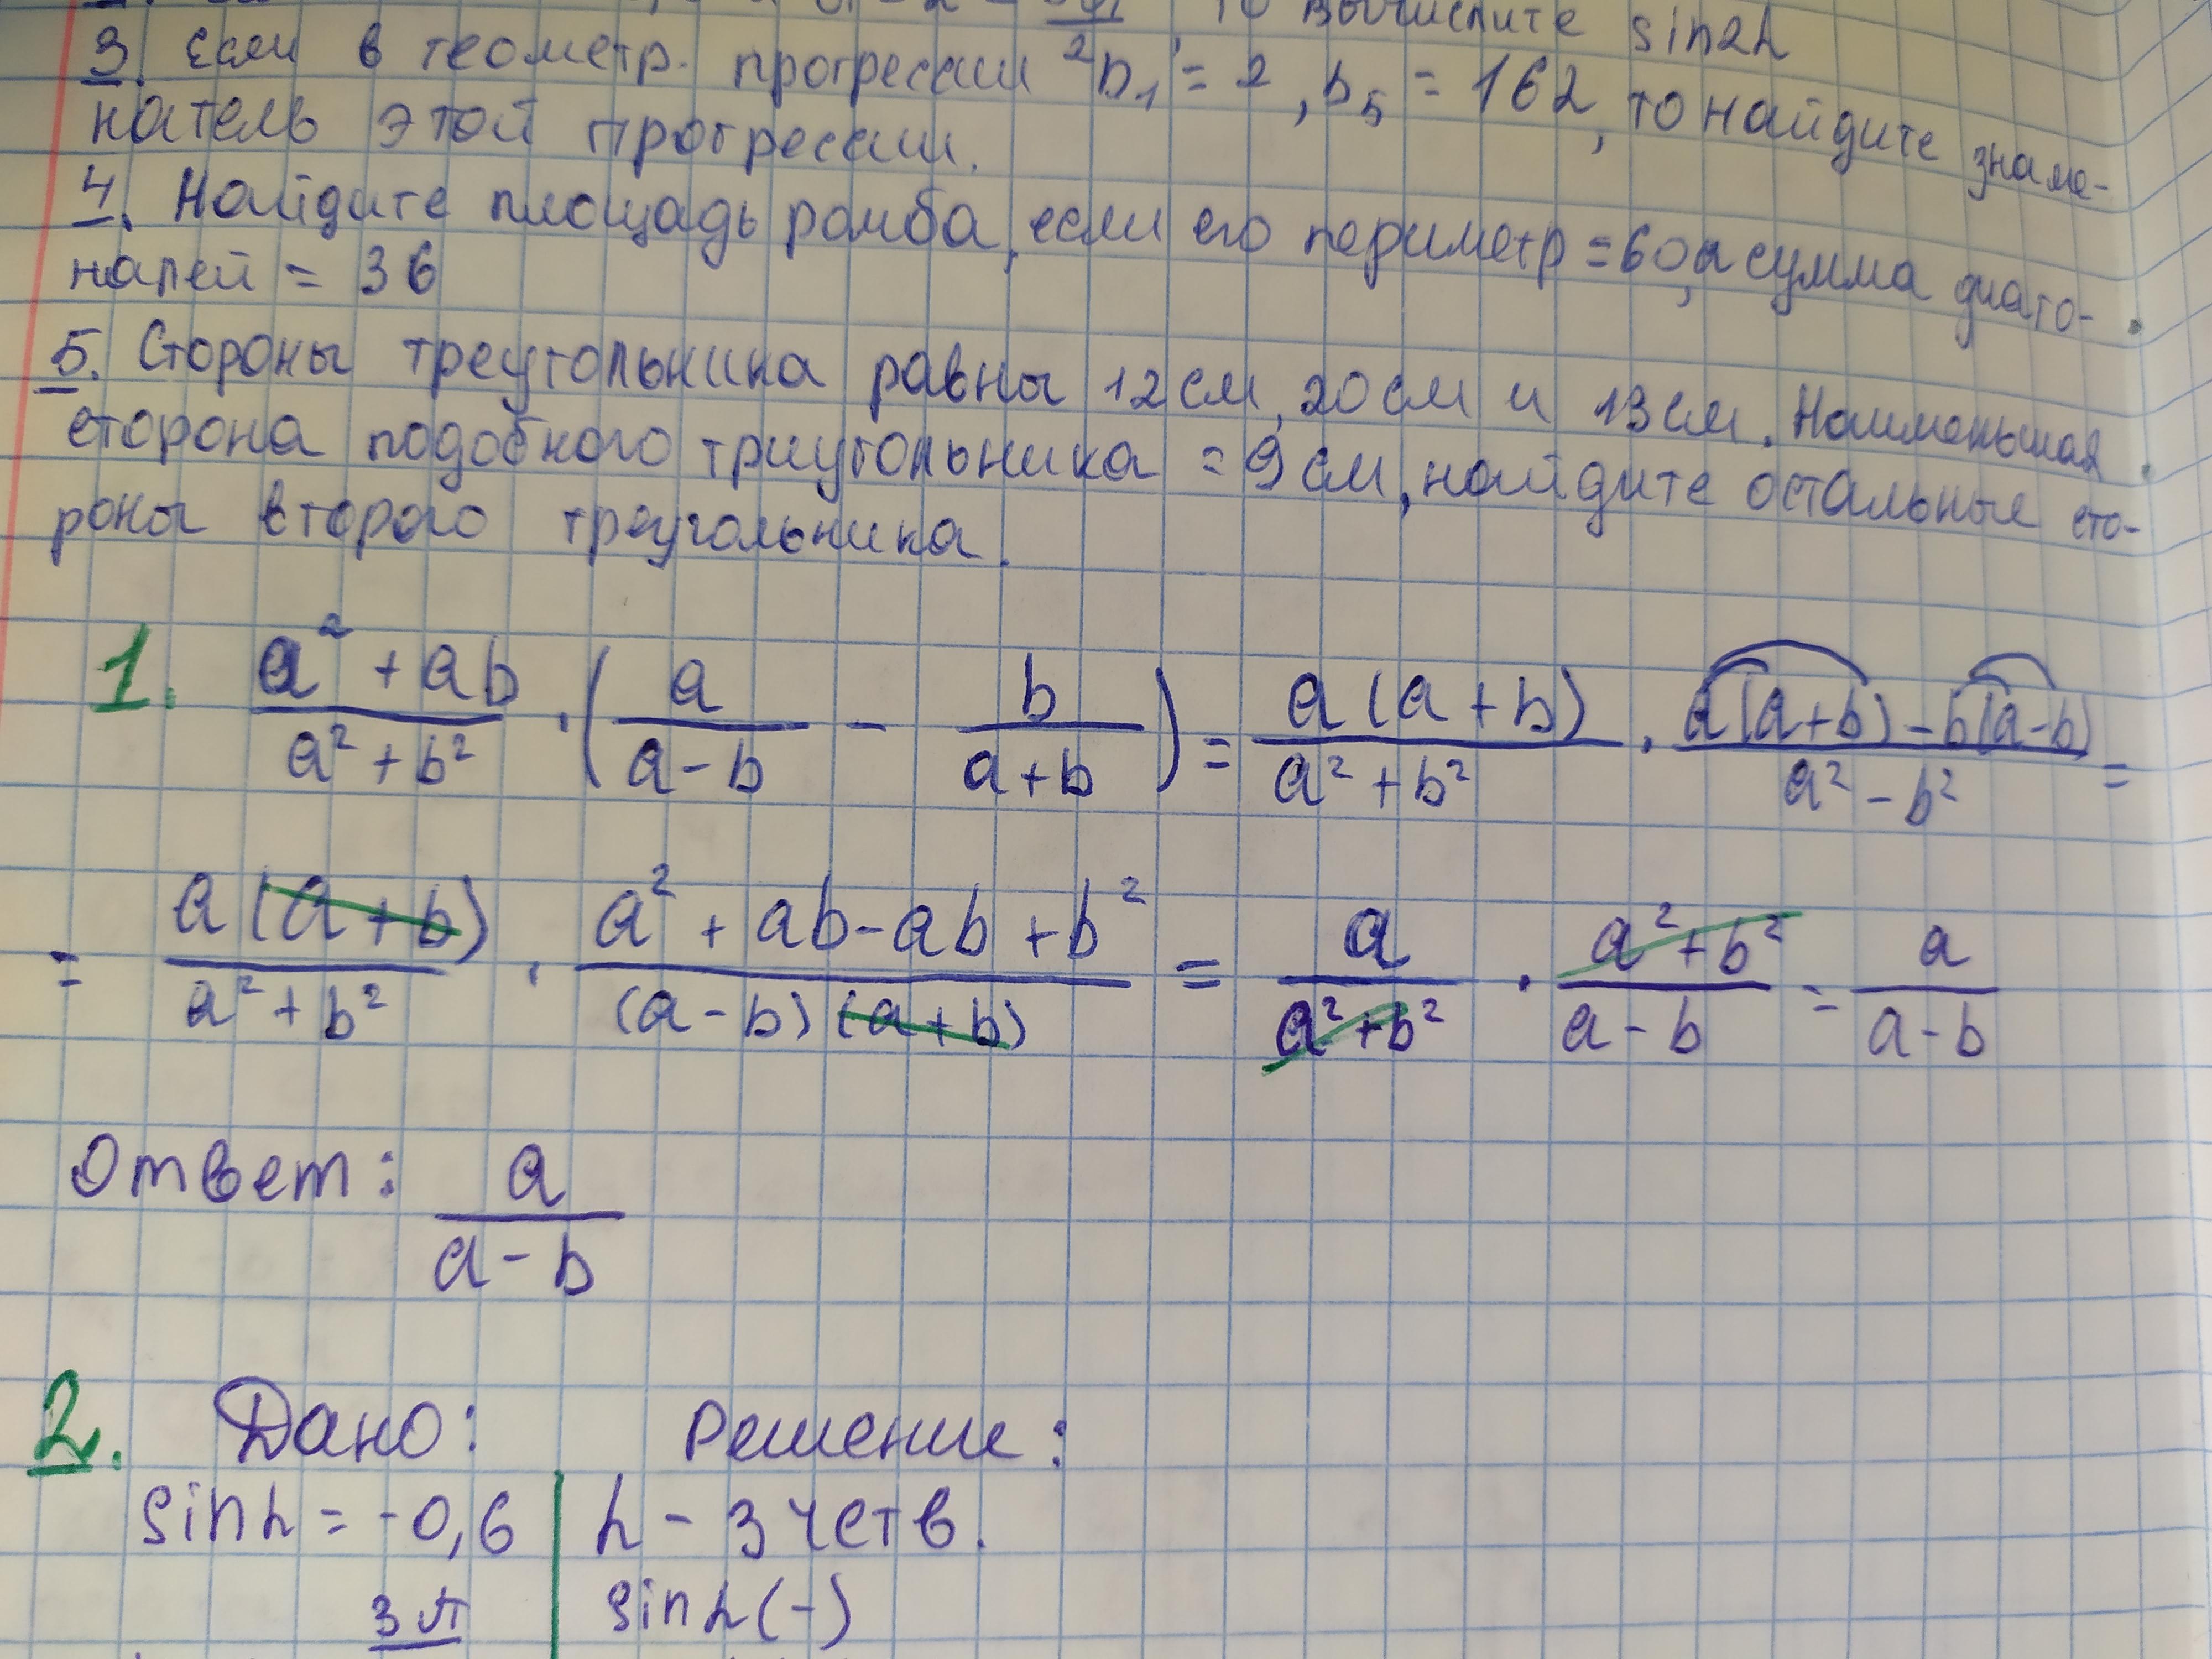 то вычислите sin2α
3. Если в геометр. прогрессии b₁ = 2, b₅ = 162, то найдите знаме-
натель этой прогрессии.
4. Найдите площадь ромба, если его периметр = 60, а сумма диаго-
налей = 36
5. Стороны треугольника равны 12см, 20см и 13см. Наименьшая
сторона подобного триугольника = 9см, найдите остальные сто-
роны второго треугольника.
1. (a² + ab)/(a² + b²) · (a/(a - b) - b/(a + b)) = a(a + b)/(a² + b²) · (a(a+b) - b(a-b))/(a² - b²) =
= a(a + b)/(a² + b²) · (a² + ab - ab + b²)/((a - b)(a + b)) = a/(a² + b²) · (a² + b²)/(a - b) = a/(a - b)
Ответ: a/(a - b)
2. Дано: Решение:
sinα = -0,6 α - 3 четв.
3π sinα (-)